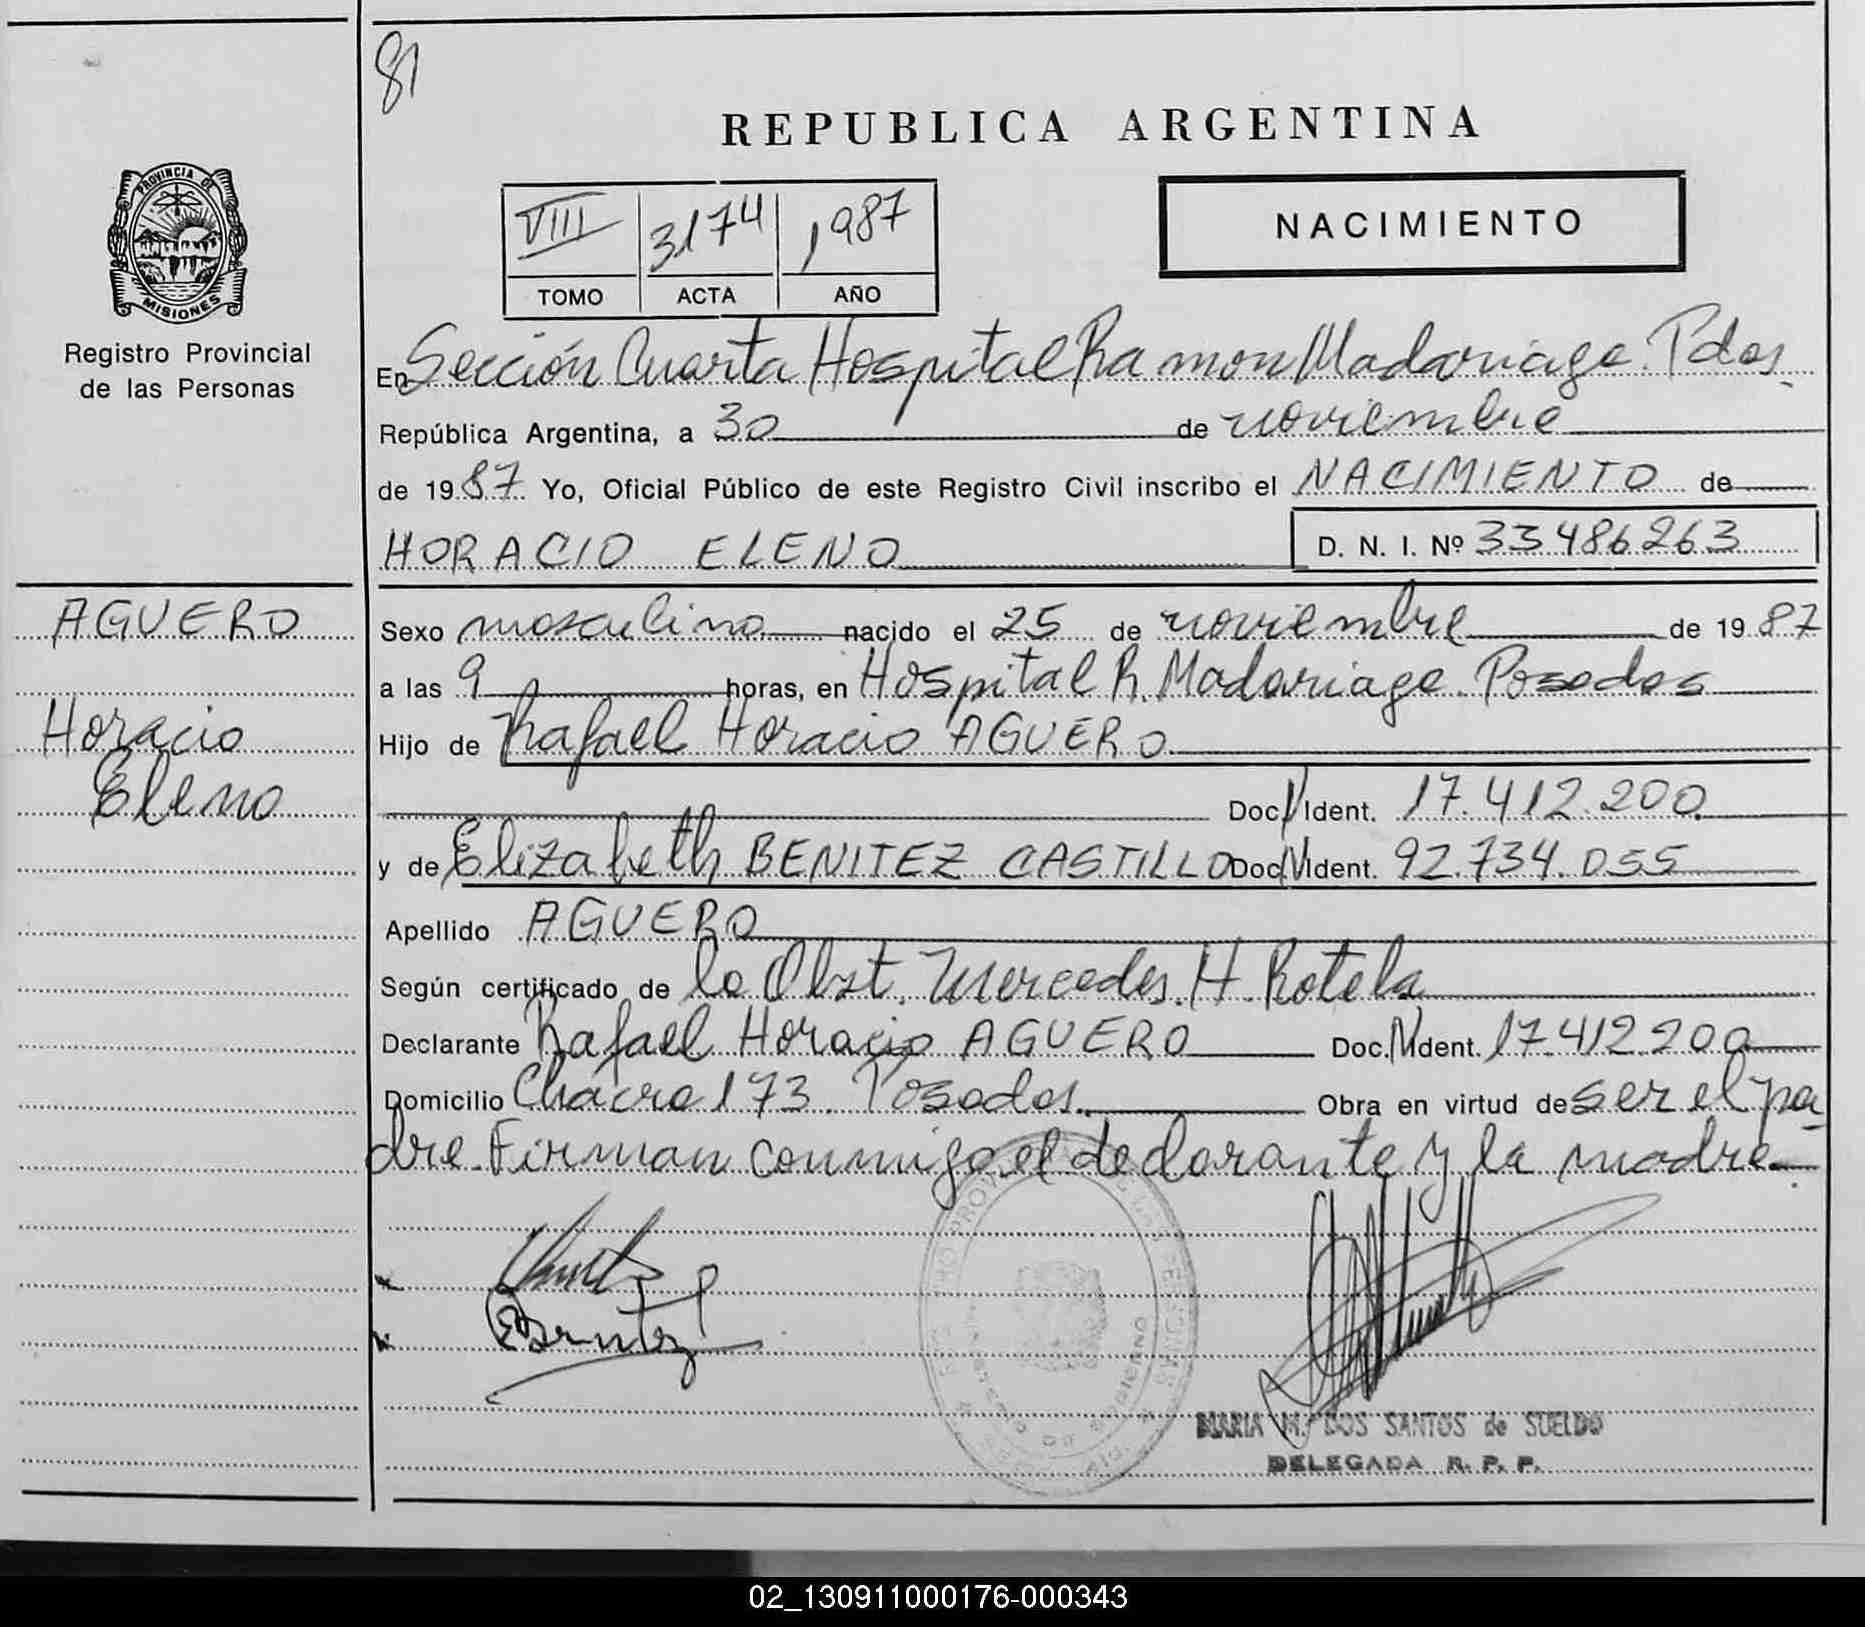 81
REPUBLICA ARGENTINA
PROVINCIA DE
MISIONES
Registro Provincial
de las Personas
VIII 3174 1987
TOMO ACTA AÑO
NACIMIENTO
En Sección Cuarta Hospital Ramon Madariaga. Pdas
República Argentina, a 30 de noviembre
de 1987 Yo, Oficial Público de este Registro Civil inscribo el NACIMIENTO de
HORACIO ELENO D. N. I. Nº 33486263
AGUERO
Horacio
Eleno
Sexo masculino nacido el 25 de noviembre de 1987
a las 9 horas, en Hospital R. Madariaga. Posadas
Hijo de Rafael Horacio AGUERO
Doc. Ident. 17.412.200
y de Elizabeth BENITEZ CASTILLO Doc. Ident. 92.734.055
Apellido AGUERO
Según certificado de la Obst. Mercedes. H. Rotela
Declarante Rafael Horacio AGUERO Doc. Ident. 17.412.200
Domicilio Chacra 173. Posadas. Obra en virtud de ser el pa-
dre. Firman conmigo el declarante y la madre.
EBenitez
MARIA M. DOS SANTOS de SUELDO
DELEGADA R. P. P.
02_130911000176-000343